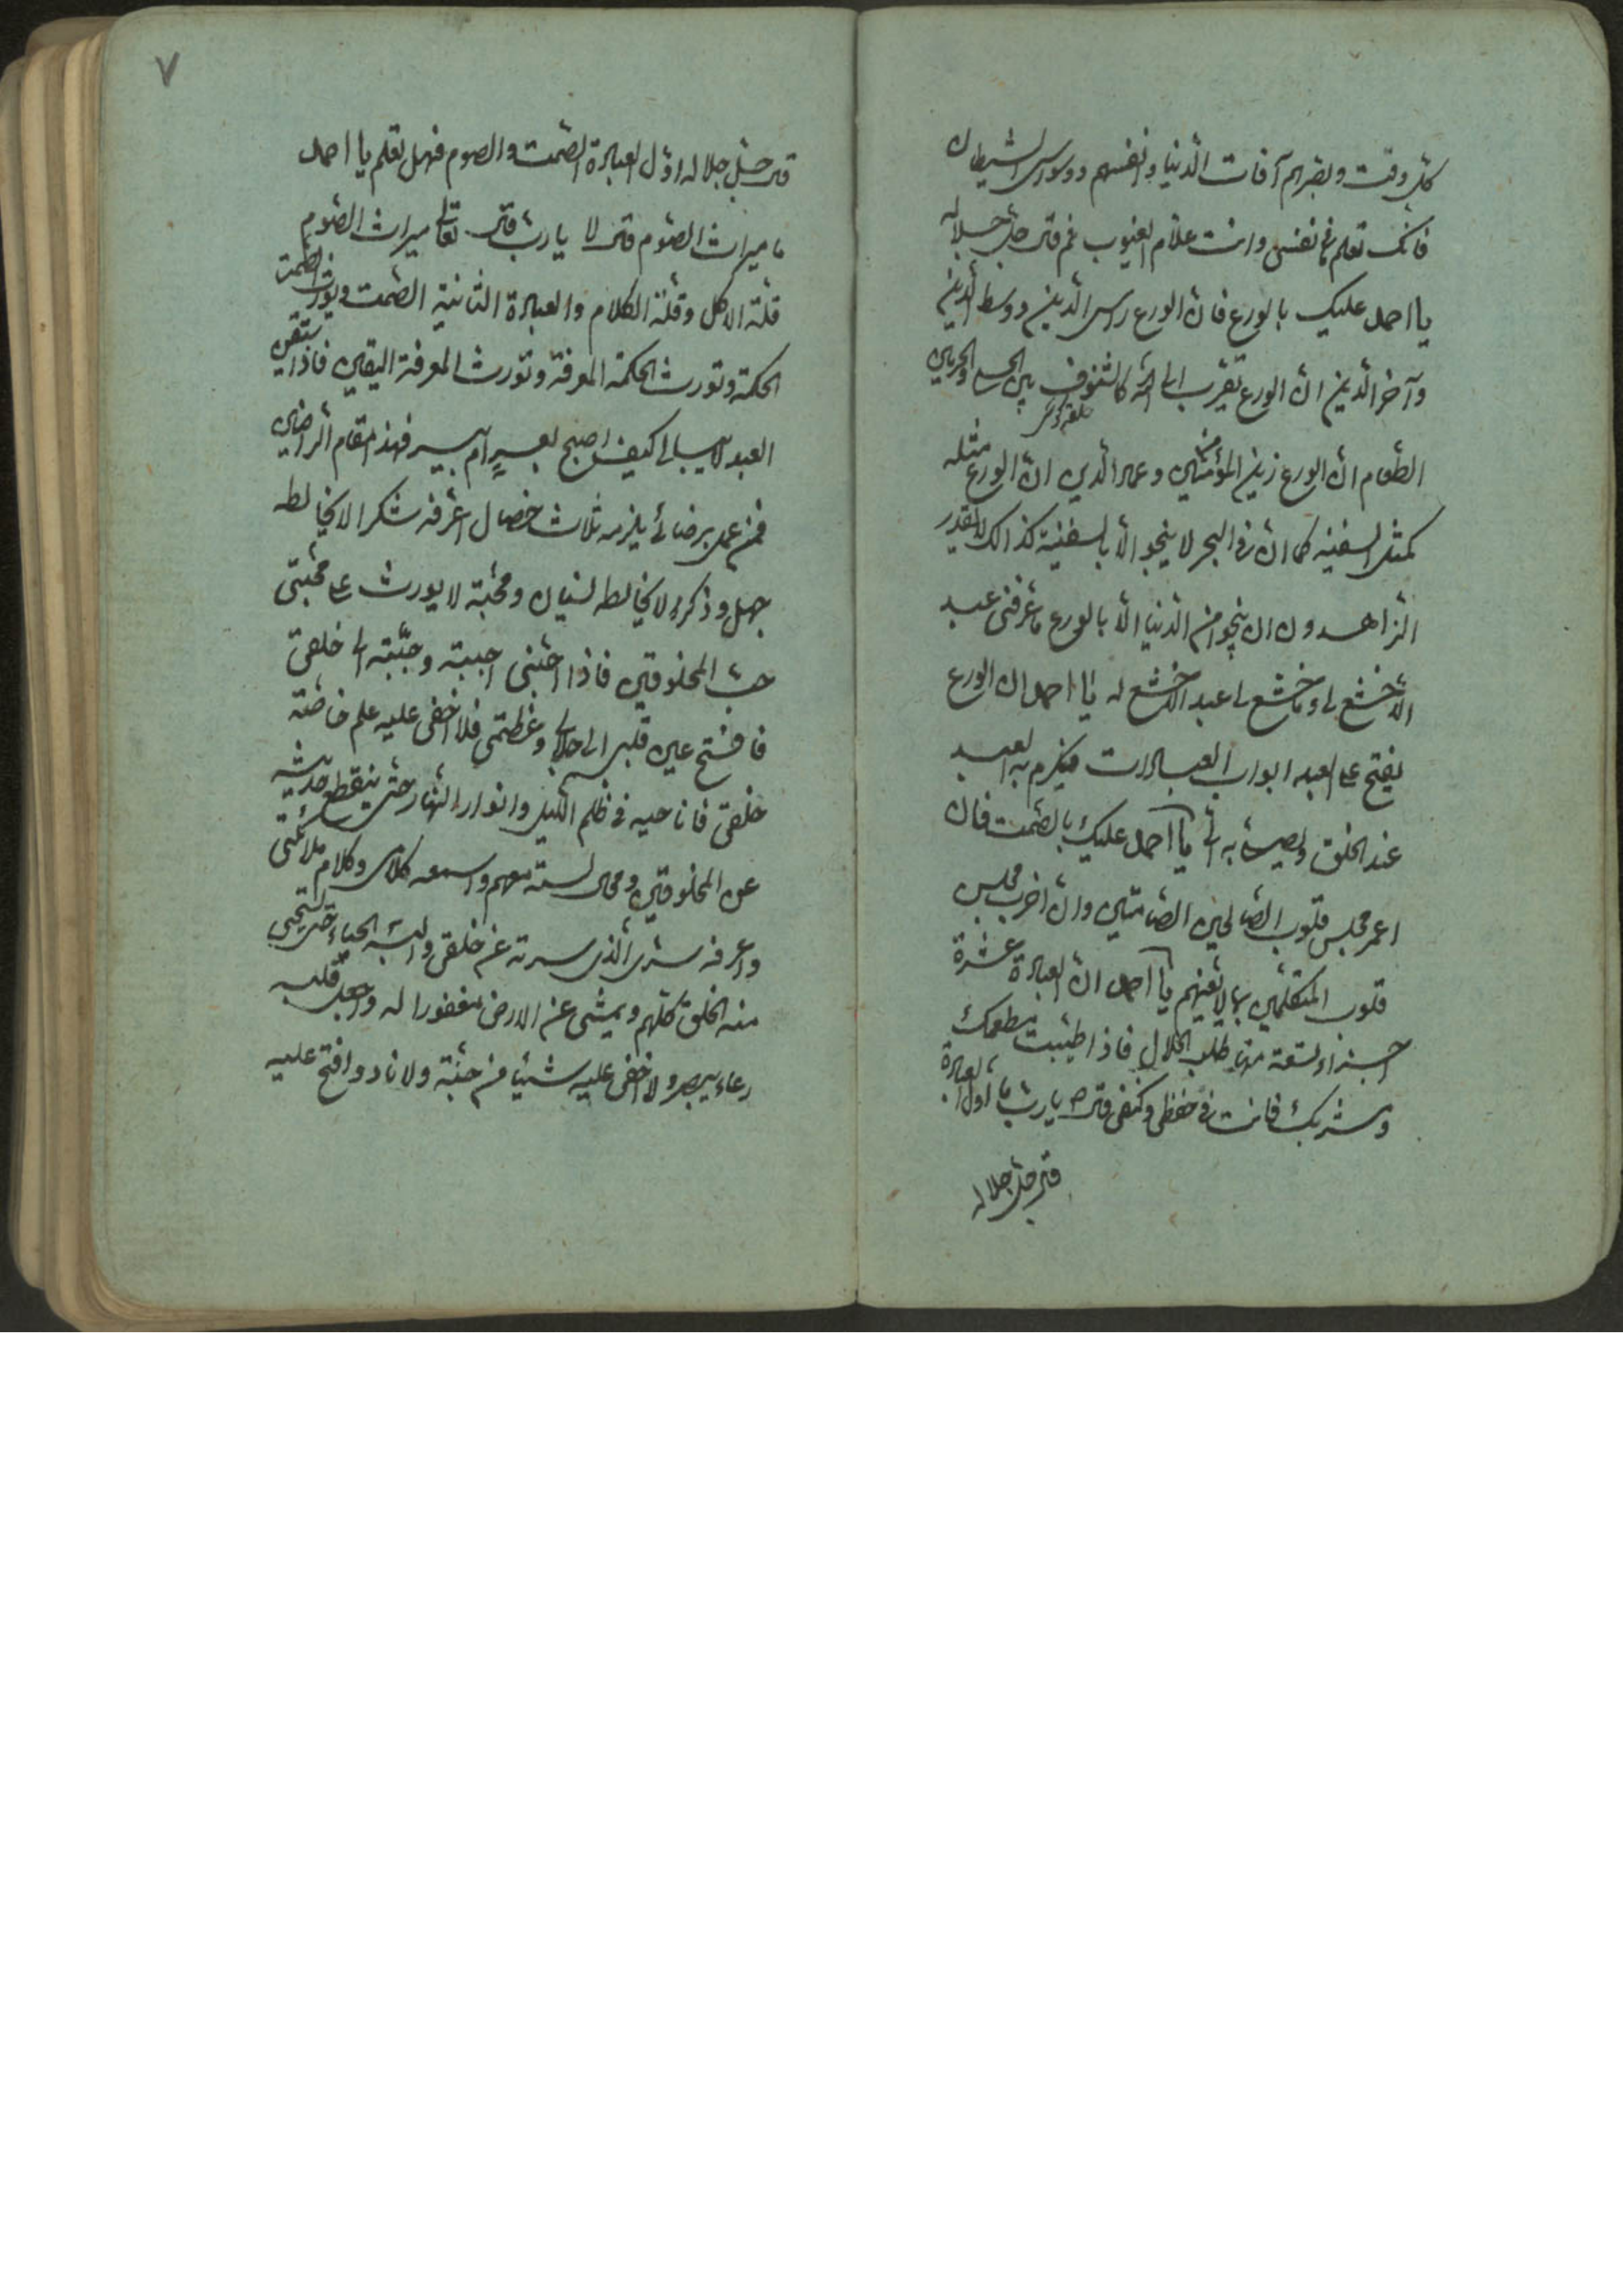 كل وقت وبصرهم آفات الدنيا وانفسهم ووسواس الشيطان
فانك تعلم ما في نفسي وانت علام الغيوب ثم قال جل جلاله
يا احمد عليك بالورع فان الورع راس الدين ووسط الدين
وآخر الدين ان الورع تقرب الى الله كالشنوف بين الحلي والخبز بين
الطعام ان الورع زين المؤمنين وعماد الدين ان الورع مثله
كمثل السفينه كما ان في البحر لا ينجو الا بالسفينة كذالك لا يقدر
الزاهدون ان ينجوا من الدنيا الا بالورع ما عرفني عبد
الا خشع لي وما خشع لي عبد الا خشع له يا احمد ان الورع
يفتح على العبد ابواب العبادات فيكرم به العبد
عند الخلق ويصل به الي يا احمد عليك بالصمت فان
اعمر مجلس قلوب الصالحين الصامتين وان اخرب مجلس
قلوب المتكلمين بما لا يعنيهم يا احمد ان العبادة عشرة
اجزاء تسعة منها طلب الحلال فاذا طيبت مطعمك
ومشربك فانت في حفظي وكنفي قال يا رب ما اول العبادة
قال جل جلاله
٧
قال جل جلاله اول العبادة الصمت والصوم فهل تعلم يا احمد
ما ميراث الصوم قال لا يا رب قال تعالى ميراث الصوم
قلة الاكل وقلة الكلام والعبادة الثانية الصمت ويورث الصمت
الحكمة وتورث الحكمة المعرفة وتورث المعرفة اليقين فاذا استيقن
العبد لا يبالي كيف اصبح بعسر ام بيسر فهذا مقام الراضين
فمن عمل برضائي يلزمه ثلاث خصال اعرفه شكرا لا يخالطه
جهل وذكرا لا يخالطه نسيان ومحبة لا يورث على محبتي
حب المخلوقين فاذا احبني احببته وحببته الى خلقي
فافتح عين قلبه الى جلالي وعظمتي فلا اخفي عليه علم خاصة
خلقي فاناجيه في ظلم الليل وانوار النهار حتى ينقطع حديثه
عن المخلوقين ومجالسته معهم واسمعه كلامي وكلام ملائكتي
واعرفه سري الذي سترته عن خلقي والبسه الحياء حتى يستحيي
منه الخلق كلهم ويمشي على الارض مغفورا له واجعل قلبه
وعاء بصيرا ولا اخفي عليه شيئا من جنة ولا نار وافتح عليه